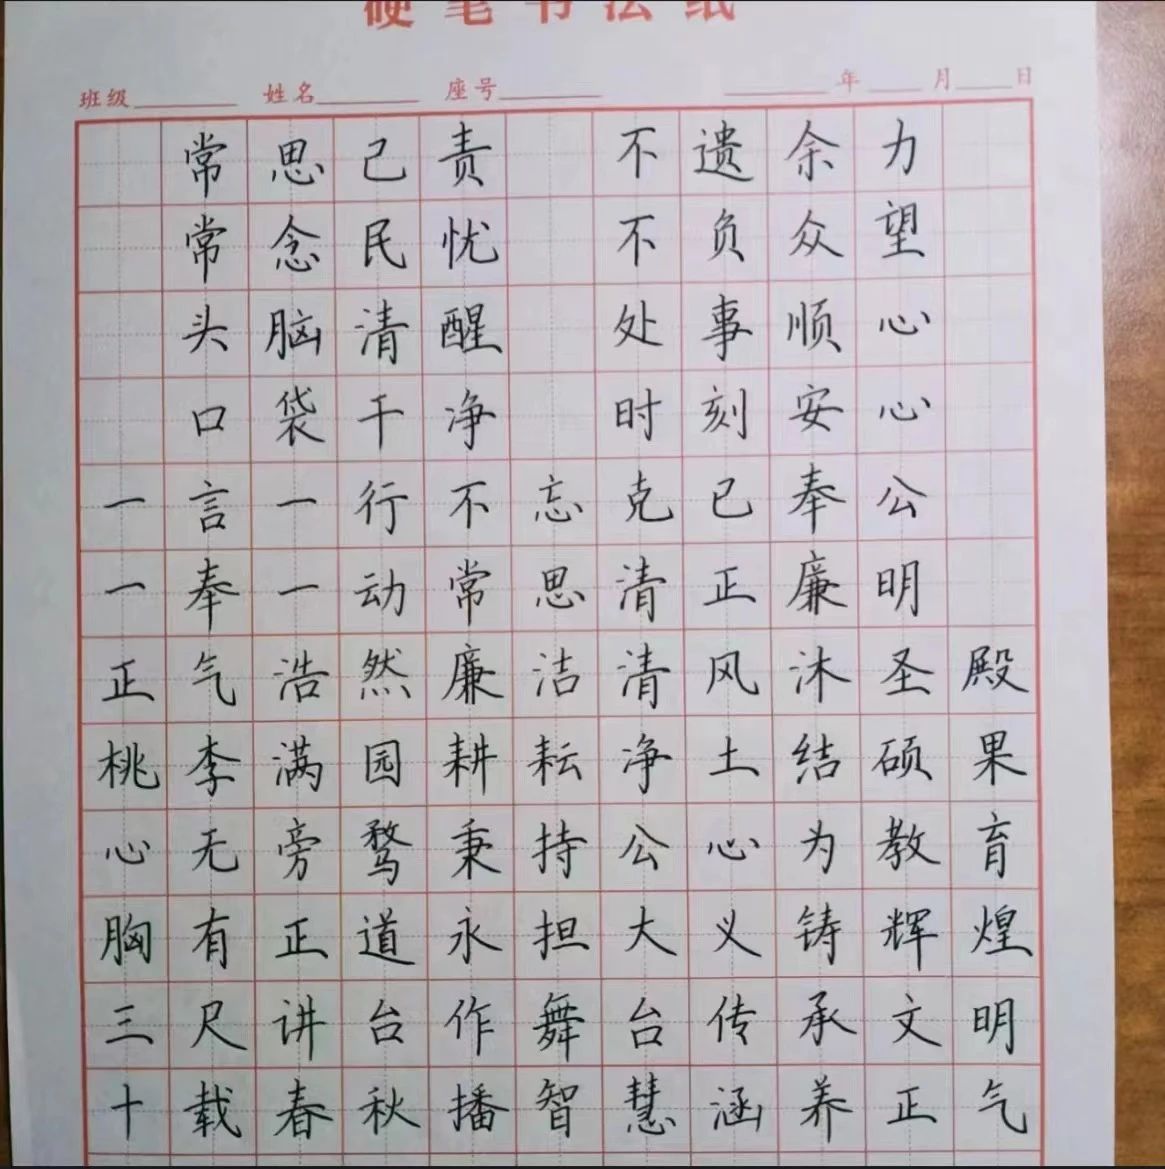 硬笔书法纸
班级 姓名 座号 年 月 日
常思己责 不遗余力
常念民忧 不负众望
头脑清醒 处事顺心
口袋干净 时刻安心
一言一行不忘克已奉公
一奉一动常思清正廉明
正气浩然廉洁清风沐圣殿
桃李满园耕耘净土结硕果
心无旁骛秉持公心为教育
胸有正道永担大义铸辉煌
三尺讲台作舞台传承文明
十载春秋播智慧涵养正气